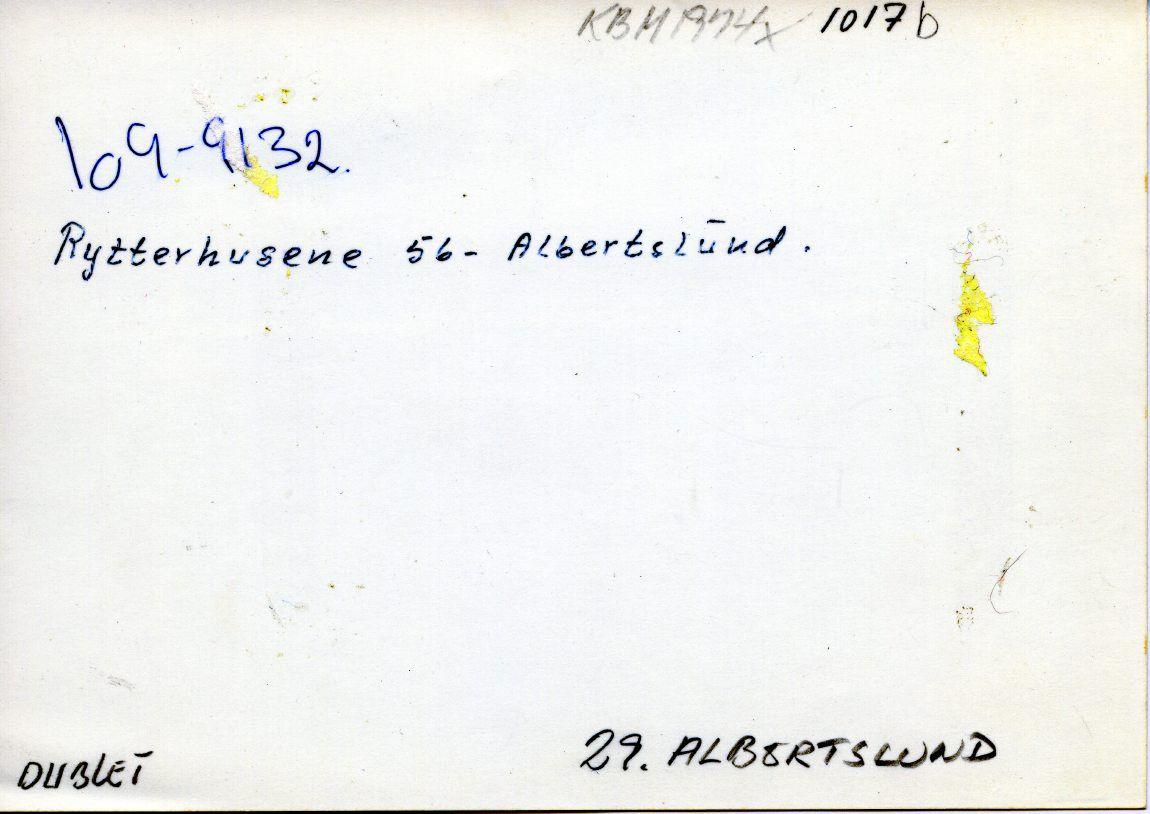 KBM1974x 1017b
109-9132.
Rytterhusene 56- Albertslund.
29. ALBERTSLUND
DUBLET